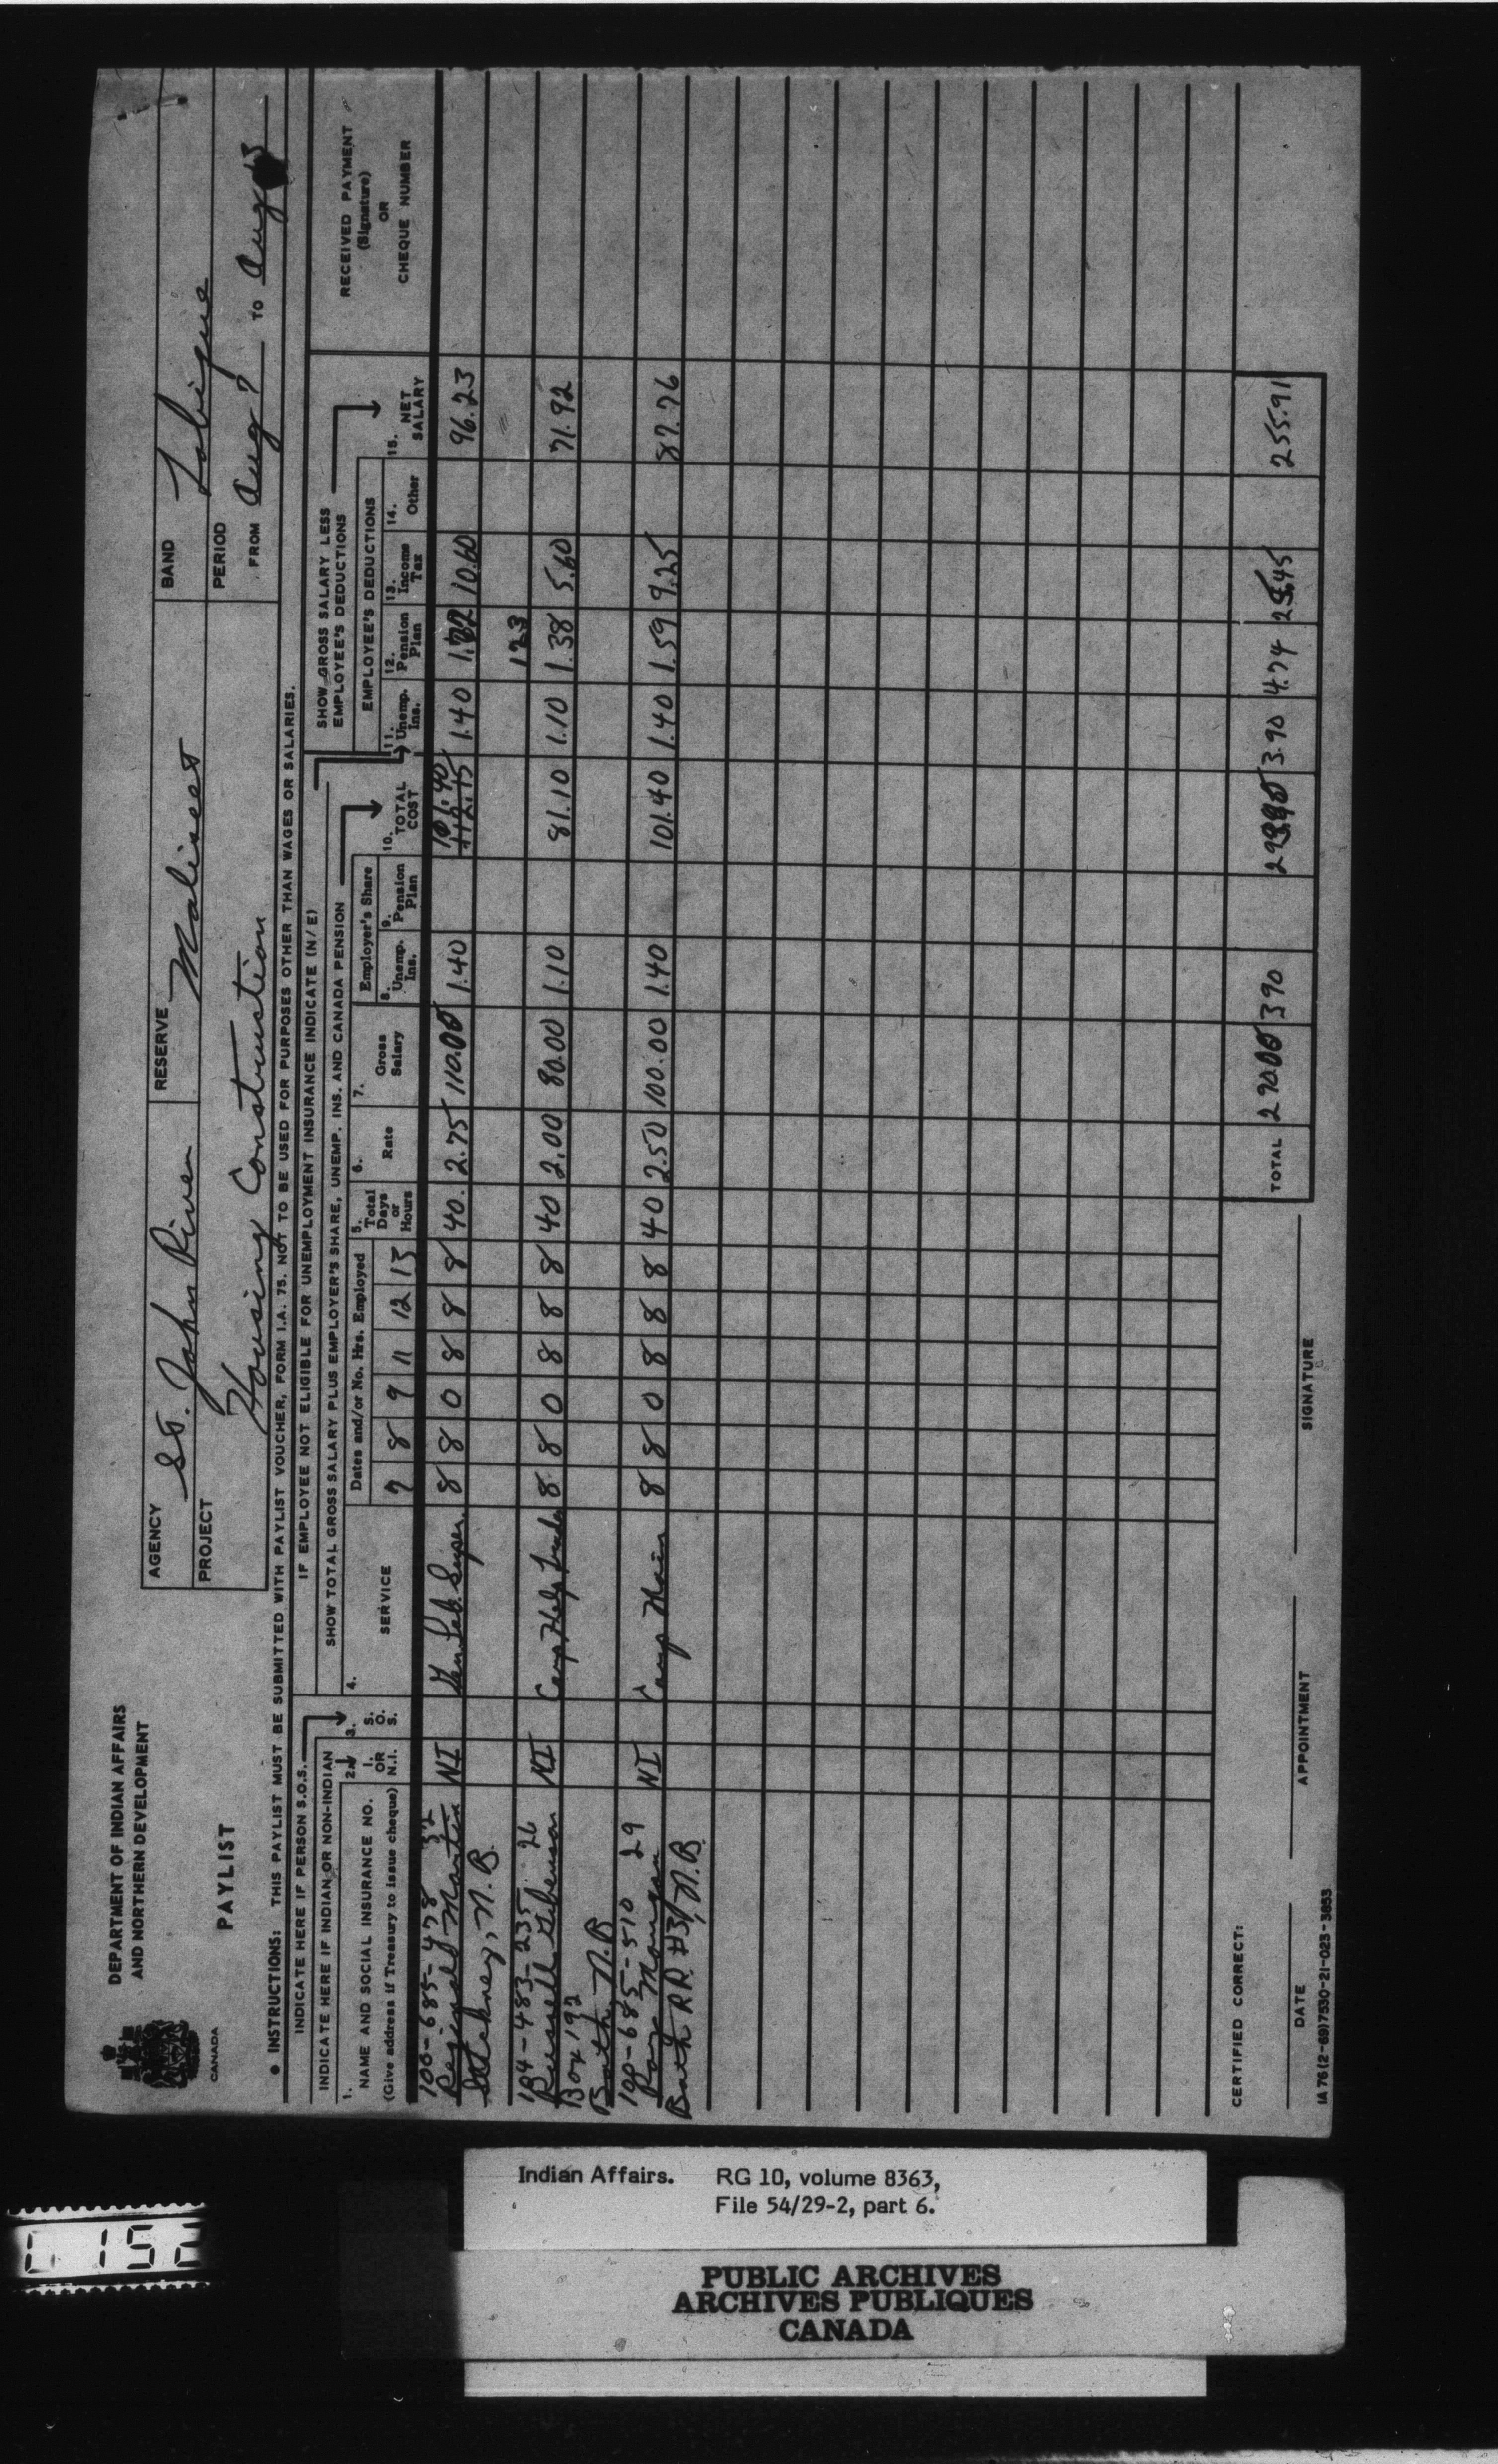 DEPARTMENT OF INDIAN AFFAIRS
AND NORTHERN DEVELOPMENT
CANADA
PAYLIST
AGENCY St. John River
RESERVE Maliseet
BAND Tobique
PROJECT Housing Construction
PERIOD
FROM Aug 7 TO Aug 13
• INSTRUCTIONS: THIS PAYLIST MUST BE SUBMITTED WITH PAYLIST VOUCHER, FORM I.A. 75. NOT TO BE USED FOR PURPOSES OTHER THAN WAGES OR SALARIES.
INDICATE HERE IF PERSON S.O.S.
IF EMPLOYEE NOT ELIGIBLE FOR UNEMPLOYMENT INSURANCE INDICATE (N/E)
INDICATE HERE IF INDIAN OR NON-INDIAN
SHOW TOTAL GROSS SALARY PLUS EMPLOYER'S SHARE, UNEMP. INS. AND CANADA PENSION
SHOW GROSS SALARY LESS
EMPLOYEE'S DEDUCTIONS
1. NAME AND SOCIAL INSURANCE NO.
(Give address if Treasury to issue cheque)
2. I. OR N.I.
3. S. O. S.
4. SERVICE
Dates and/or No. Hrs. Employed
7 8 9 11 12 13
5. Total Days or Hours
6. Rate
7. Gross Salary
Employer's Share
8. Unemp. Ins.
9. Pension Plan
10. TOTAL COST
EMPLOYEE'S DEDUCTIONS
11. Unemp. Ins.
12. Pension Plan
13. Income Tax
14. Other
15. NET SALARY
RECEIVED PAYMENT
(Signature)
OR
CHEQUE NUMBER
100-685-478 32
Reginald Martin NI Gen. Lab. Super. 8 8 0 8 8 8 40. 2.75 110.00 1.40 112.15 1.40 10.60 96.23
101.40
N.B.
123
194-483-235 26
Russell NI Carp Help 8 8 0 8 8 8 40 2.00 80.00 1.10 81.10 1.10 1.38 5.60 71.92
Box 192
Bath N.B
100-685-510 29
NI Carp Main 8 8 0 8 8 8 40 2.50 100.00 1.40 101.40 1.40 1.59 9.25 87.76
Bath RR #3, N.B.
TOTAL 290.00 3.90 3.90 4.74 25.45 255.91
CERTIFIED CORRECT:
DATE
APPOINTMENT
SIGNATURE
IA 76 (2-69) 7530-21-023-3653
Indian Affairs. RG 10, volume 8363,
File 54/29-2, part 6.
PUBLIC ARCHIVES
ARCHIVES PUBLIQUES
CANADA